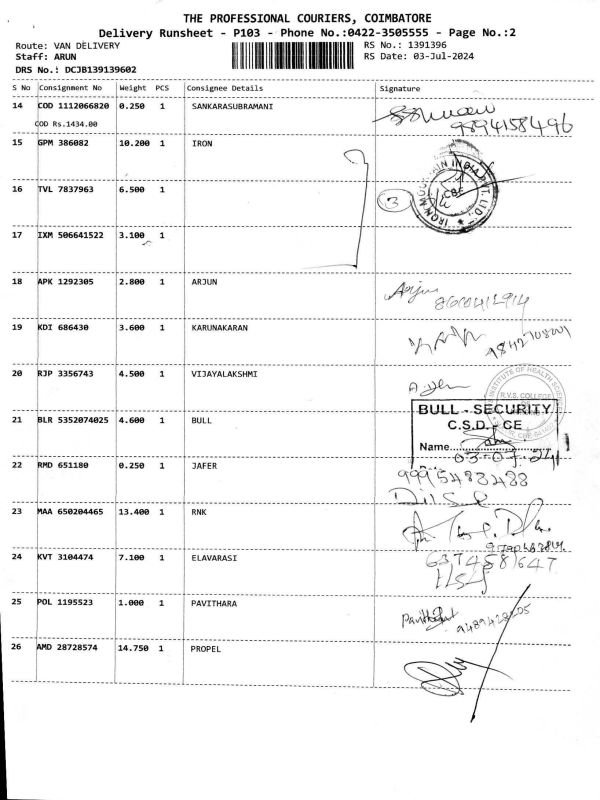 THE PROFESSIONAL COURIERS, COIMBATORE
Delivery Runsheet - P103 - Phone No.:0422-3505555 - Page No.:2
Route: VAN DELIVERY RS No.: 1391396
Staff: ARUN RS Date: 03-Jul-2024
DRS No.: DCJB139139602
S No Consignment No Weight PCS Consignee Details Signature
14 COD 1112066820 0.250 1 SANKARASUBRAMANI
COD Rs.1434.00 9894158496
15 GPM 386082 10.200 1 IRON
16 TVL 7837963 6.500 1 3
17 IXM 506641522 3.100 1
18 APK 1292305 2.800 1 ARJUN Arjun
8600412914
19 KDI 686430 3.600 1 KARUNAKARAN
20 RJP 3356743 4.500 1 VIJAYALAKSHMI
21 BLR 5352074025 4.600 1 BULL BULL - SECURITY
C.S.D - CE
Name
03-07-24
22 RMD 651180 0.250 1 JAFER 9995483488
23 MAA 650204465 13.400 1 RNK
24 KVT 3104474 7.100 1 ELAVARASI 6374581647
25 POL 1195523 1.000 1 PAVITHARA
26 AMD 28728574 14.750 1 PROPEL